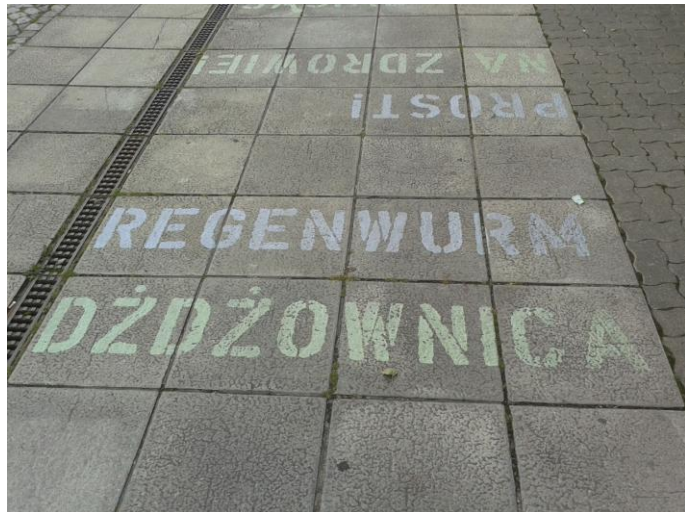 NA ZDROWIE!
PROST!
REGENWURM
DŻDŻOWNICA